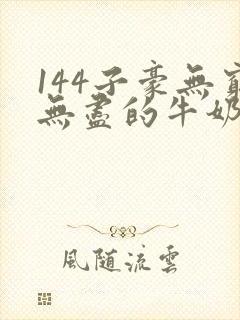 144子豪無窮
無盡的牛奶
風随流雲